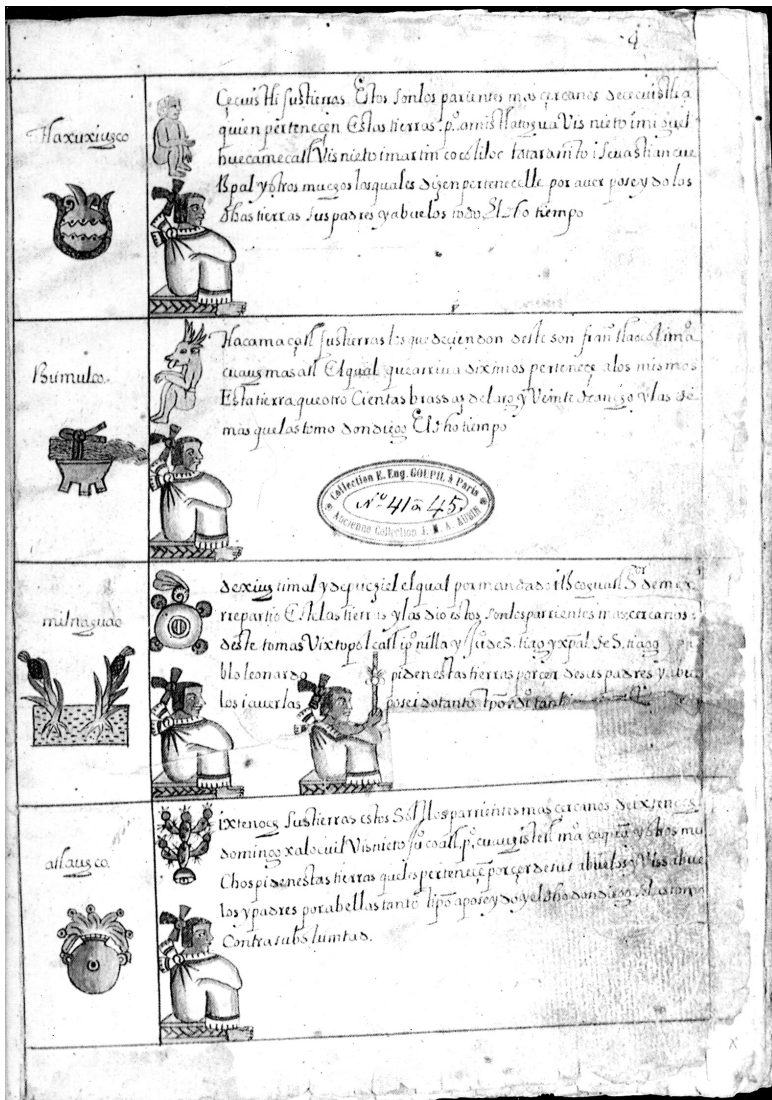 9
tlaxuxiuzco
Çecuistli sus tierras Estos son los parientes mas çercanos de cecuistli a
quien perteneçen Estas tierras: pº. amistlatogua Vis nieto i miguel
huecamecatl Vis nieto i martin cocoliloc tataranito i Sevastian cue
tspal y otros muchos los quales dizen pertenecelle por aver poseydo las
dhas tierras sus padres y abuelos todo El dho tiempo
Bumulco.
tlacamaçatl sus tierras los que deçienden deste son franco
cuauz masatl El qual que arriva diximos perteneçe a los mismos
Esta tierra quatro Cientas brassas de largo y Veinte de ancho y las de
mas que las tomo don diego El dho tiempo
Collection E. Eug. GOUPIL à Paris
Nº 41 à 45.
Ancienne Collection J. M. A. AUBIN
milnaguac
de xiuztimal y de el qual por mandado itscoguatl Sor de mex
rrepartio Estas tierras y las dio estos son los parrientes mas cercanos
deste tomas Vixtopolcatl
blo leonardo piden estas tierras por çer de sus padres y abue
los i averlas poseido tanto tpo
atlauzco.
ixtenoch sus tierras estos Son los parrientes mas cercanos de ixtenoch
domingo xalocuil Visnieto juº coatl pº. y otros mu
Chos piden estas tierras que les perteneçe por çer de sus abuelos y Viss abue
los y padres por abellas tanto tipo aposeydo y el dho don diego se las tomo
Contra su boluntad.